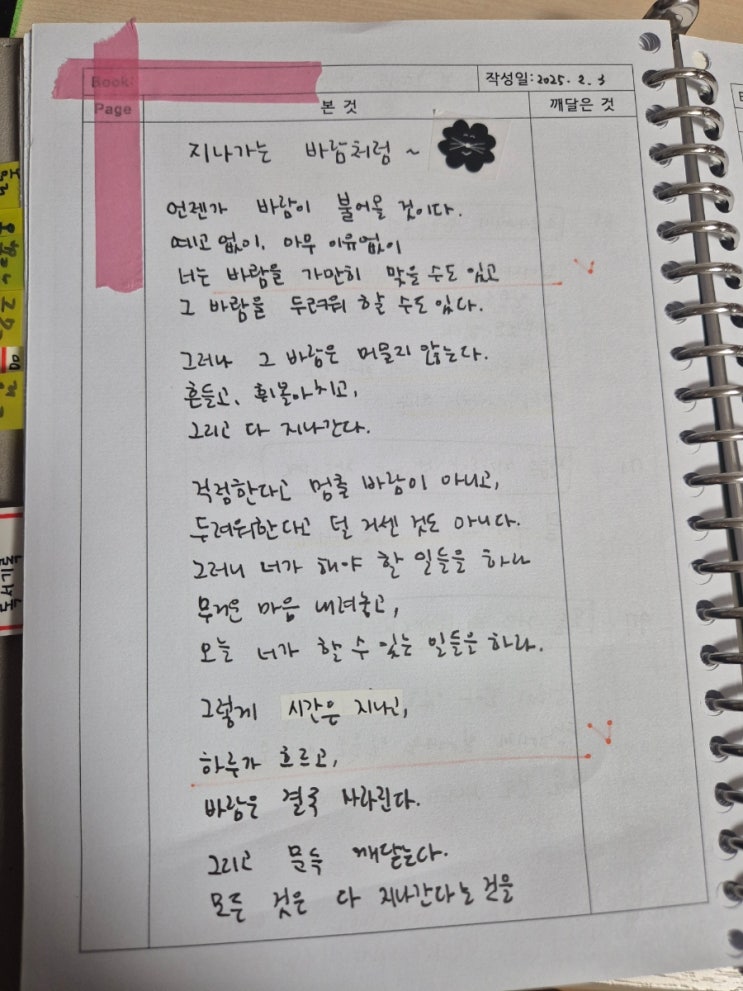 Book:
작성일:2025. 2. 3
Page
본 것
깨달은 것
지나가는 바람처럼 ~
언젠가 바람이 불어올 것이다.
예고 없이, 아무 이유 없이
너는 바람을 가만히 맞을 수도 있고
그 바람을 두려워 할 수도 있다.
그러나 그 바람은 머물지 않는다.
흔들고, 휘몰아치고,
그리고 다 지나간다.
걱정한다고 멈출 바람이 아니고,
두려워한다고 덜 거센 것도 아니다.
그러니 너가 해야 할 일들을 하라
무거운 마음 내려놓고,
오늘 너가 할 수 있는 일들은 하라.
그렇게 시간은 지나고,
하루가 흐르고,
바람은 결국 사라진다.
그리고 문득 깨닫는다.
모든 것은 다 지나간다는 것을